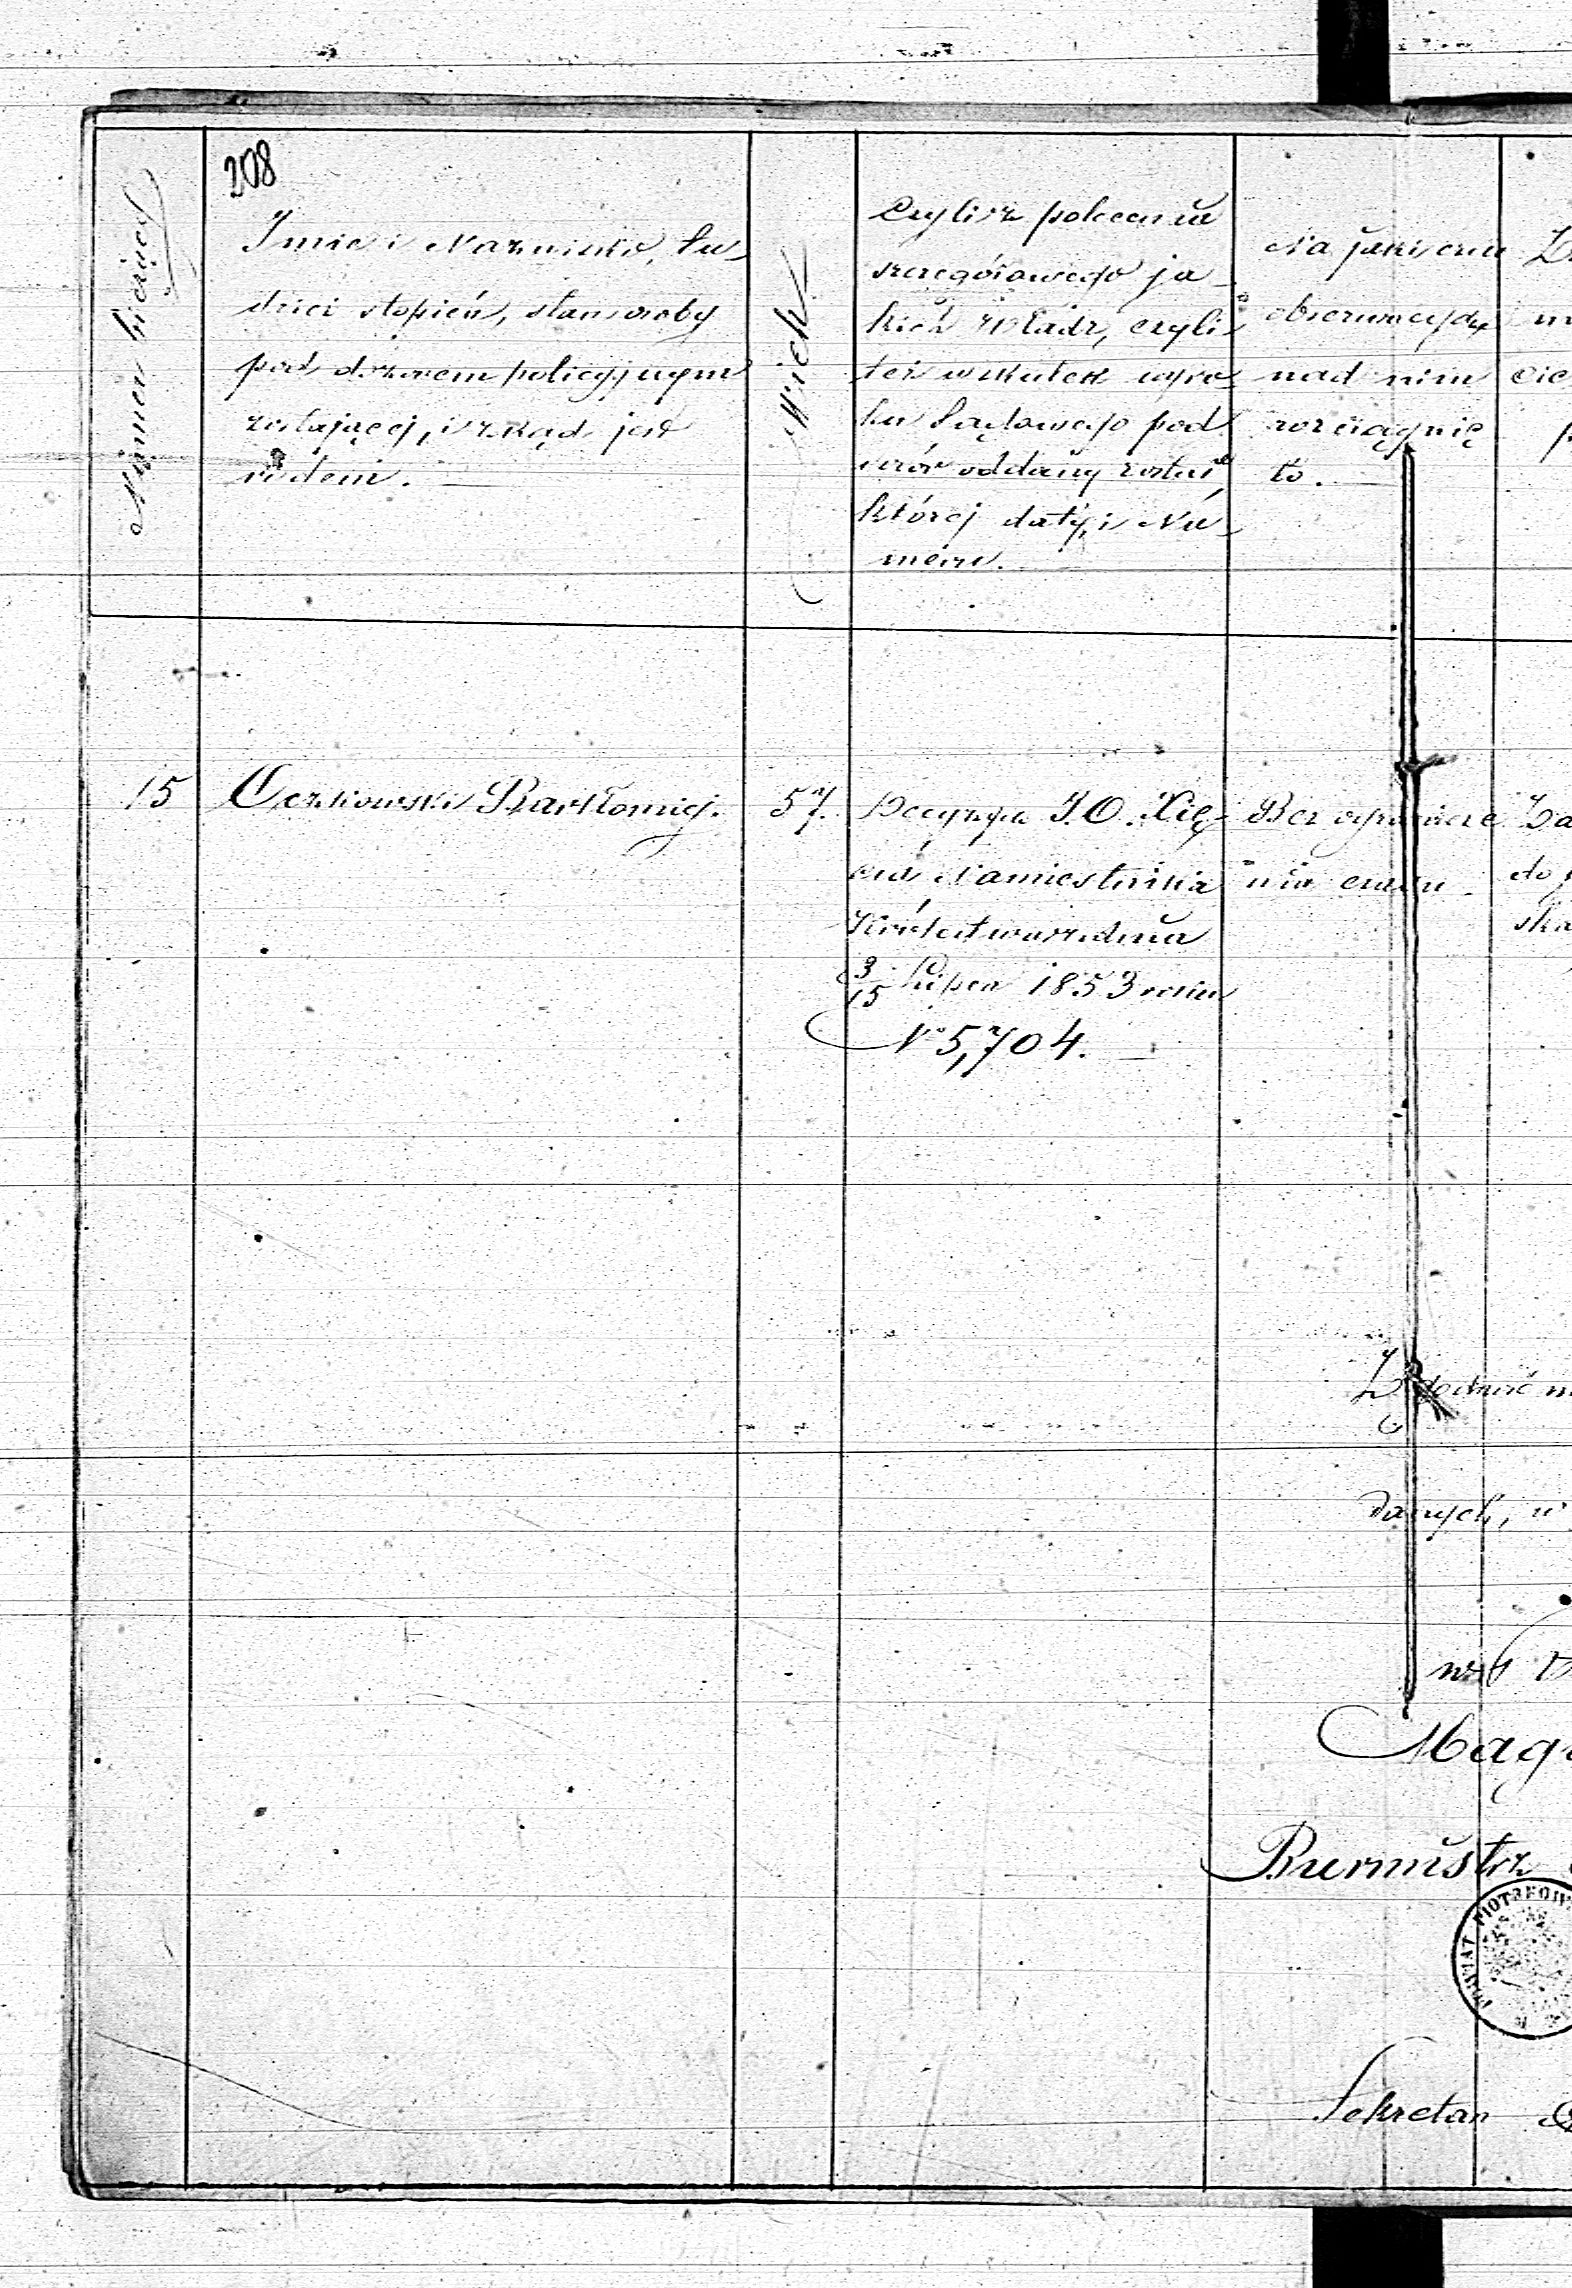 208
Numer bieżący
Imie i Nazwisko, tu-
dzież stopień, stan osoby
pod dozorem policyjnym
zostającej, i zkąd jest
rodem.
Wiek
Czyli z polecenia
szczegółowego ja-
kich Władz, czyli
też wskutek wyro-
ku Sądowego pod
dozór oddany został
której daty, i Nu-
meru.
Na jaki czas
obserwacya
nad nim
rozciągnię
to.
15
Oczkowski Bartłomiej.
57.
Decyzya J. O. Xię-
cia Namiestnika
Królestwa z dnia
3/15 Lipca 1853 roku
No 5,704.
Bez ogranicze
nia czasu.
Za
do
ska
Zgodność
danych, w
Mag
Burmistrz
POWIAT PIOTRKOW
Sekretarz